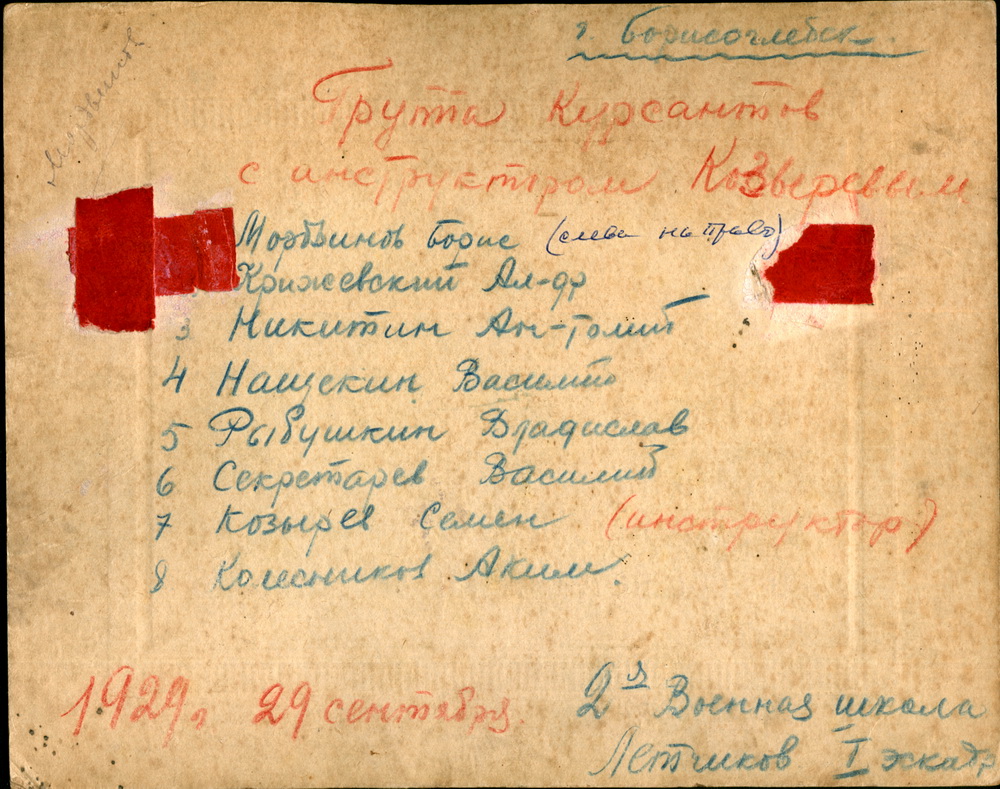 г. Борисоглебск.
Группа Курсантов
с инструктором Козверевым
Мордвинов Борис (слева направо)
Крижевский Ал-др
3 Никитин Ан-толий
4 Нащекин Василий
5 Рыбушкин Владислав
6 Секретарев Василий
7 Козырев Семен (инструктор)
8 Колесников Аким.
1929г 29 сентября.
2я Военная школа
Летчиков I эскадр